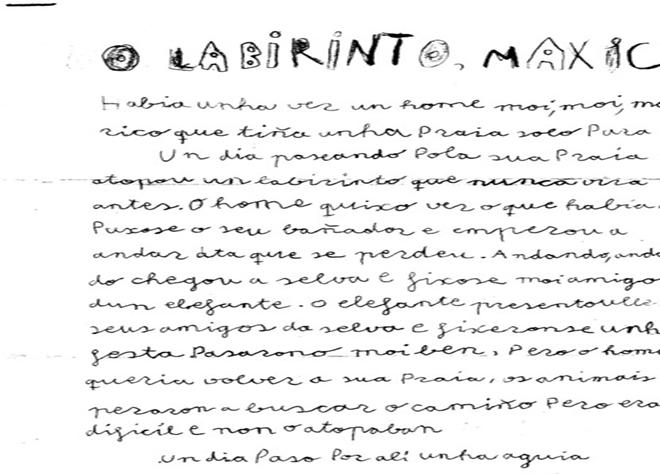 O LABIRINTO MAXIC
Habia unha vez un home moi, moi, mo
rico que tiña unha Praia solo Para
Un dia paseando Pola sua Praia
atopou un labirinto que nunca vira
antes. O home quixo ver o que habia.
Puxose o seu bañador e empezou a
andar áta que se perdeu. Andando, anda
do chegou a selva e fixose moi amigo
dun elefante. O elefante presentoulle
seus amigos da selva e fixeronse unh
festa Pasarono moi ben, Pero o home
queria volver a sua Praia, os animais
pezaron a buscar o camiño Pero era
dificíl e non o atopaban
Un dia Paso Por alí unha aguia